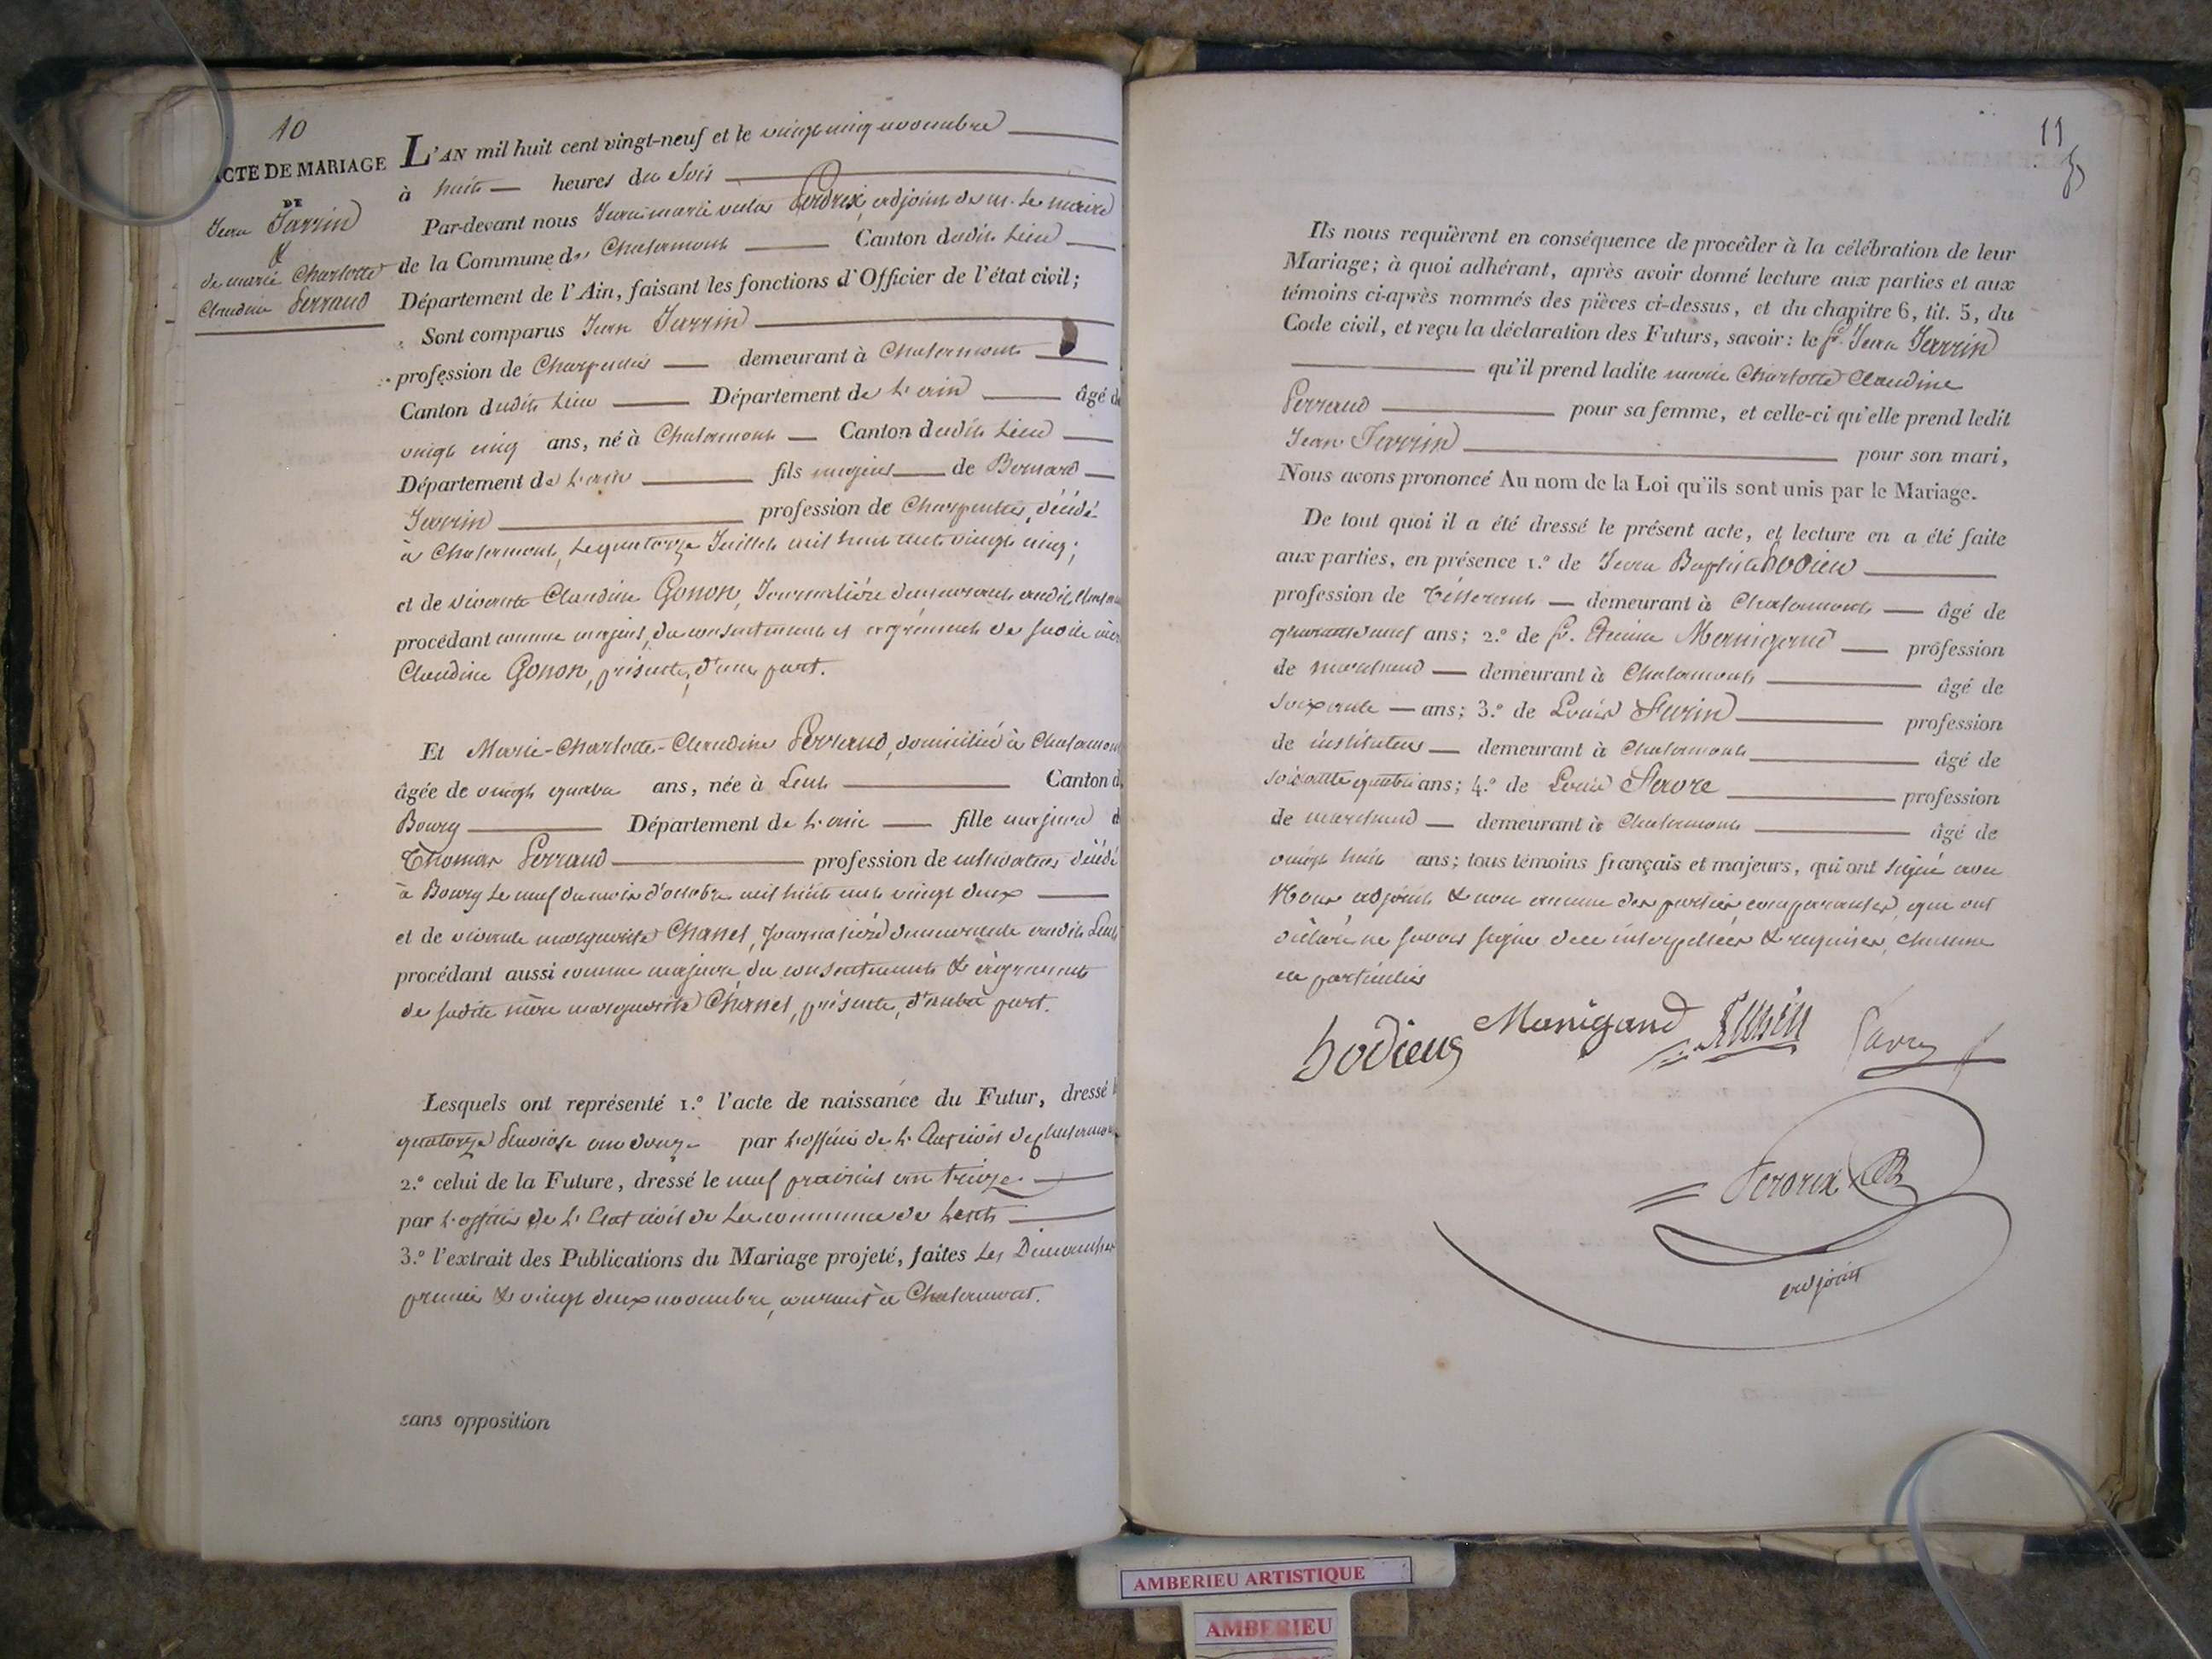 10
ACTE DE MARIAGE
DE
Jean Jarrin
&
de marie Charlotte
Claudine Perraud
L'AN mil huit cent vingt-neuf et le vingt cinq novembre
à huit heures du Soir
Par-devant nous Jean marie Perdrix, adjoint de m. Le maire
de la Commune de Chalamont Canton dudit Lieu
Département de l'Ain, faisant les fonctions d'Officier de l'état civil;
Sont comparus Jean Jarrin
profession de Charpentier demeurant à Chalamont
Canton dudit Lieu Département de L'ain âgé de
vingt cinq ans, né à Chalamont Canton dudit Lieu
Département de L'ain fils majeur de Bernard
Jarrin profession de Charpentier, décédé
à Chalamont, Le quatorze Juillet mil huit cent vingt cinq;
et de vivante Claudine Gonon, Journalière demeurant audit
procédant comme majeur, du consentement et agrément de sadite mère
Claudine Gonon, présente, d'une part.
Et Marie-Charlotte-Claudine Perraud, domiciliée à Chalamont
âgée de vingt quatre ans, née à Lent Canton d
Bourg Département de L'ain fille majeure d
Thomas Perraud profession de cultivateur décédé
à Bourg Le neuf du mois d'octobre mil huit cent vingt deux
et de vivante marguerite Chanel, Journalière demeurante audit Lent
procédant aussi comme majeure du consentement & agrément
de sadite mère marguerite Chanel, présente, d'autre part.
Lesquels ont représenté 1.º l'acte de naissance du Futur, dressé
quatorze Pluviose an douze par L'officier de L'Etat civil de Chalamont
2.º celui de la Future, dressé le neuf prairial an treize
par L'officier de L'Etat civil de La commune de Lent
3.º l'extrait des Publications du Mariage projeté, faites Les Dimanches
premier & vingt deux novembre, courant à Chalamont.
sans opposition
11
Ils nous requièrent en conséquence de procéder à la célébration de leur
Mariage; à quoi adhérant, après avoir donné lecture aux parties et aux
témoins ci-après nommés des pièces ci-dessus, et du chapitre 6, tit. 5, du
Code civil, et reçu la déclaration des Futurs, savoir: le sr. Jean Jarrin
qu'il prend ladite marie Charlotte Claudine
Perraud pour sa femme, et celle-ci qu'elle prend ledit
Jean Jarrin pour son mari,
Nous avons prononcé Au nom de la Loi qu'ils sont unis par le Mariage.
De tout quoi il a été dressé le présent acte, et lecture en a été faite
aux parties, en présence 1.º de Jean Baptiste hodieu
profession de Tisserant demeurant à Chalamont âgé de
quarante neuf ans; 2.º de sr. Manigand profession
de marchand demeurant à Chalamont âgé de
soixante ans; 3.º de Louis profession
de instituteur demeurant à Chalamont âgé de
soixante quatre ans; 4.º de Louis profession
de marchand demeurant à Chalamont âgé de
vingt huit ans; tous témoins français et majeurs, qui ont signé avec
Nous adjoint & non aucune des parties comparantes, qui ont
déclaré ne savoir signer de ce interpellées & requises, chacune
en particulier
hodieu Manigand
Perdrix
adjoint
AMBERIEU ARTISTIQUE
AMBERIEU